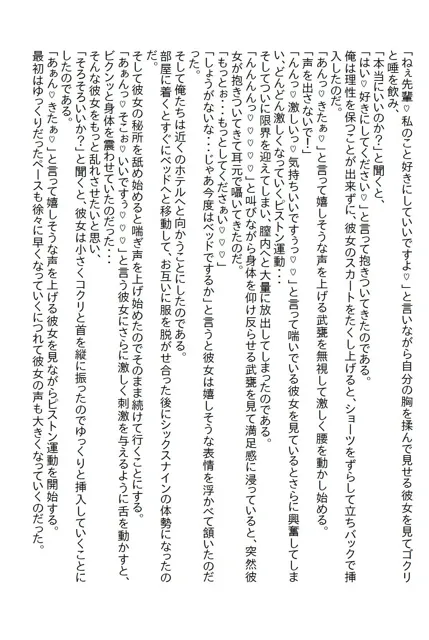 「ねぇ先輩♡私のこと好きにしていいですよ♡」と言いながら自分の胸を揉んで見せる彼女を見てゴクリ
と唾を飲む。
「本当にいいのか？」と聞くと、
「はい♡好きにしてください♡」と言って抱きついてきたのである。
俺は理性を保つことが出来ずに、彼女のスカートをたくし上げると、ショーツをずらして立ちバックで挿
入したのだ。
「あんっ♡きたぁ♡」と言って嬉しそうな声を上げる武甕を無視して激しく腰を動かし始める。
「声を出さないで！」
「んんっ♡激しいっ♡気持ちいいですぅ♡♡」と言って喘いでいる彼女を見ているとさらに興奮してしま
い、どんどん激しくなっていくピストン運動・・
そしてついに限界を迎えてしまい、膣内へと大量に放出してしまったのである。
「んんんっ♡♡♡」と叫びながら身体を仰け反らせる武甕を見て満足感に浸っていると、突然彼
女が抱きついてきて耳元で囁いてきたのだ。
「もっとぉ・・もっとしてくださぁい♡♡」
「しょうがないな・・・じゃあ今度はベッドでするか」と言うと彼女は嬉しそうな表情を浮かべて頷いたのだ
った。
そして俺たちは近くのホテルへと向かうことにしたのである。
部屋に着くとすぐにベッドへと移動して、お互いに服を脱がせ合った後にシックスナインの体勢になったの
だ。
そして彼女の秘所を舐め始めると喘ぎ声を上げ始めたのでそのまま続けて行くことにする。
「あぁんっ♡そこぉ♡いいですぅ♡♡♡」と言う彼女にさらに激しく刺激を与えるように舌を動かすと、
ビクンッと身体を震わせていたのだった・・・
そんな彼女をもっと乱れさせたいと思い、
「そろそろいいか？」と聞くと、彼女は小さくコクリと首を縦に振ったのでゆっくりと挿入していくことに
したのである。
「あぁん♡きたぁ♡」と言って嬉しそうな声を上げる彼女を見ながらピストン運動を開始する。
最初はゆっくりだったペースも徐々に早くなっていくにつれて彼女の声も大きくなっていくのだった。